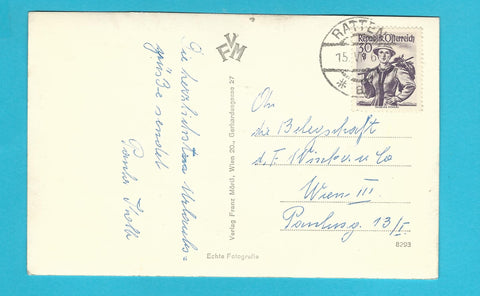 Die herzlichsten Urlaubs=
grüße sendet
Familie
VFM
Verlag Franz Mörtl, Wien 20., Gerhardusgasse 27
Echte Fotografie
RATTEN
15. V
Republik Österreich
30
An
die Belegschaft
d. F. Winkler u Co
Wien III.
13/I
8293